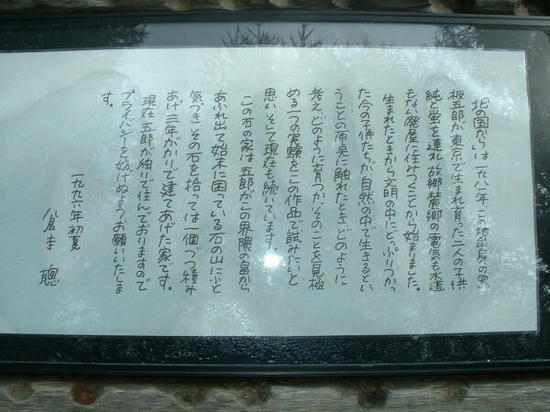 北の国からは一九八一年、この地出身の黒
板五郎が東京で生まれ育った二人の子供
純と蛍を連れ故郷麓郷の電気も水道
もない廃屋に住みつくことから始まりました。
生まれたときから文明の中にどっぷりつかっ
た今の子供たちが、自然の中で生きるとい
うことの原点に触れたとき、どのように
考えどのように育つか、そのことを見極
める一つの実験をこの作品で試みたいと
思い、そして現在も続いています。
この石の家は、五郎がこの界隈の畠から
あふれ出て始末に困っている石の山にふと
気づき、その石を拾っては一個づつ積み
あげ三年がかりで建てあげた家です。
現在五郎が独りで住んでおりますので
プライバシーを妨げぬようお願いいたしま
す。
一九九六年初夏
倉本 聰